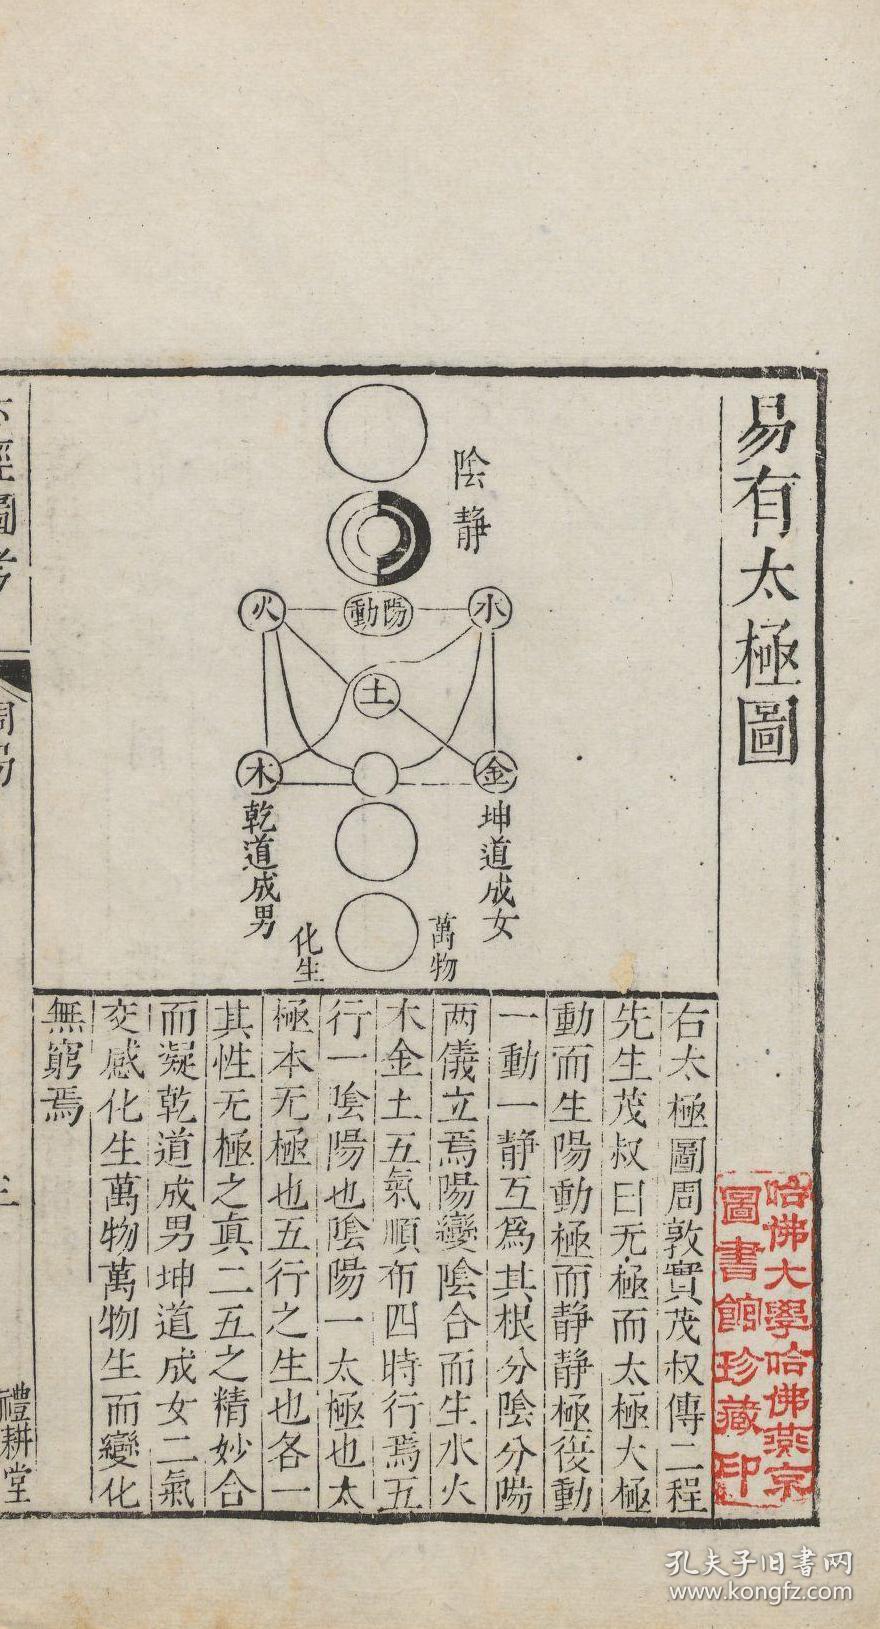 易有太極圖
陰靜
陽動
水
火
土
金
木
坤道成女
乾道成男
萬物
化生
右太極圖周敦實茂叔傳二程
先生茂叔曰无極而太極大極
動而生陽動極而静静極復動
一動一静互爲其根分陰分陽
两儀立焉陽變陰合而生水火
木金土五氣順布四時行焉五
行一陰陽也陰陽一太極也太
極本无極也五行之生也各一
其性无極之真二五之精妙合
而凝乾道成男坤道成女二氣
交感化生萬物萬物生而變化
無窮焉
六經圖考
周易
三
禮耕堂
哈佛大學哈佛燕京
圖書館珍藏印
孔夫子旧書网
www.kongfz.com